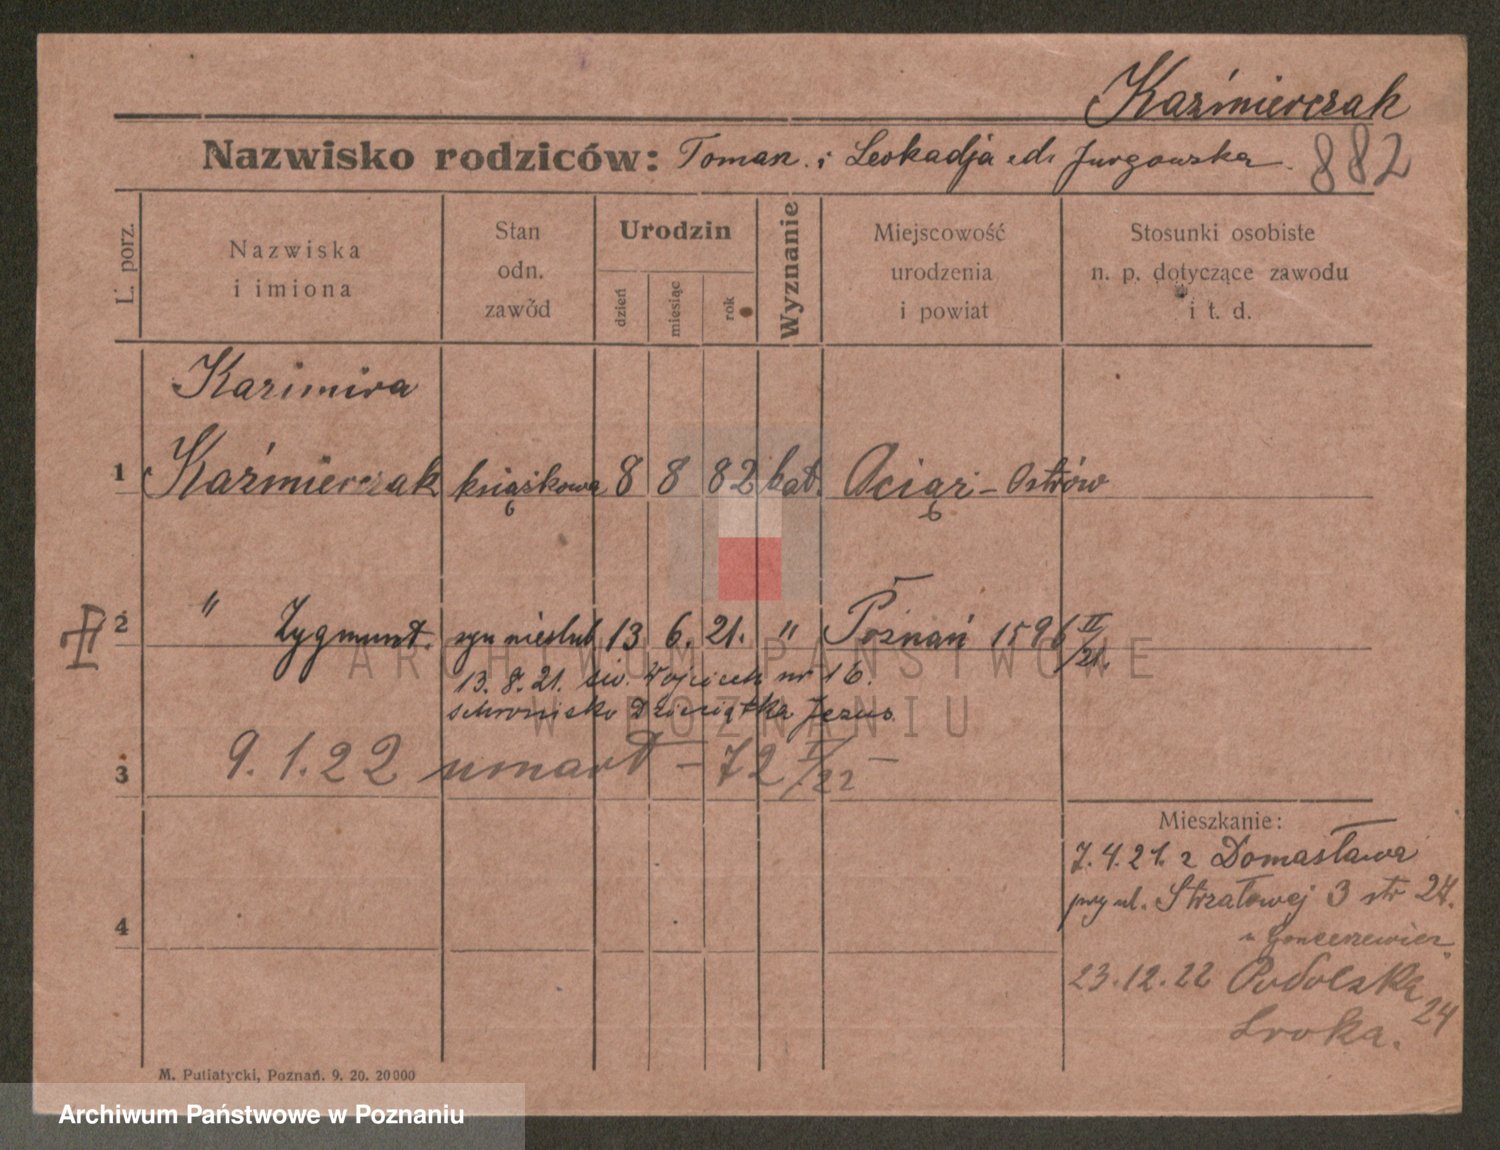 Kaźmierczak
Nazwisko rodziców: Toman. i Leokadja Jurgowska.
882
L. porz.
Nazwiska i imiona
Stan odn. zawód
Urodzin
dzień
miesiąc
rok
Wyznanie
Miejscowość urodzenia i powiat
Stosunki osobiste n. p. dotyczące zawodu i t. d.
Kazimira
1 Kaźmierczak książkowa 8 8 82 kat. Ociąż - Ostrów
2 " Zygmunt. syn nieślub 13 6. 21. " Poznań 1596 II/21.
13.8.21. św. Wojciech nr 16.
schronisko Dzieciątka Jezus
3 9.1.22 umarł - 72 I/22 -
Mieszkanie:
7.4.21. z Domasława
przy ul. Strzałowej 3 str 27.
23.12.22 Podolska 24
4
M. Putiatycki, Poznań. 9. 20. 20000
ARCHIWUM PAŃSTWOWE
W POZNANIU
Archiwum Państwowe w Poznaniu